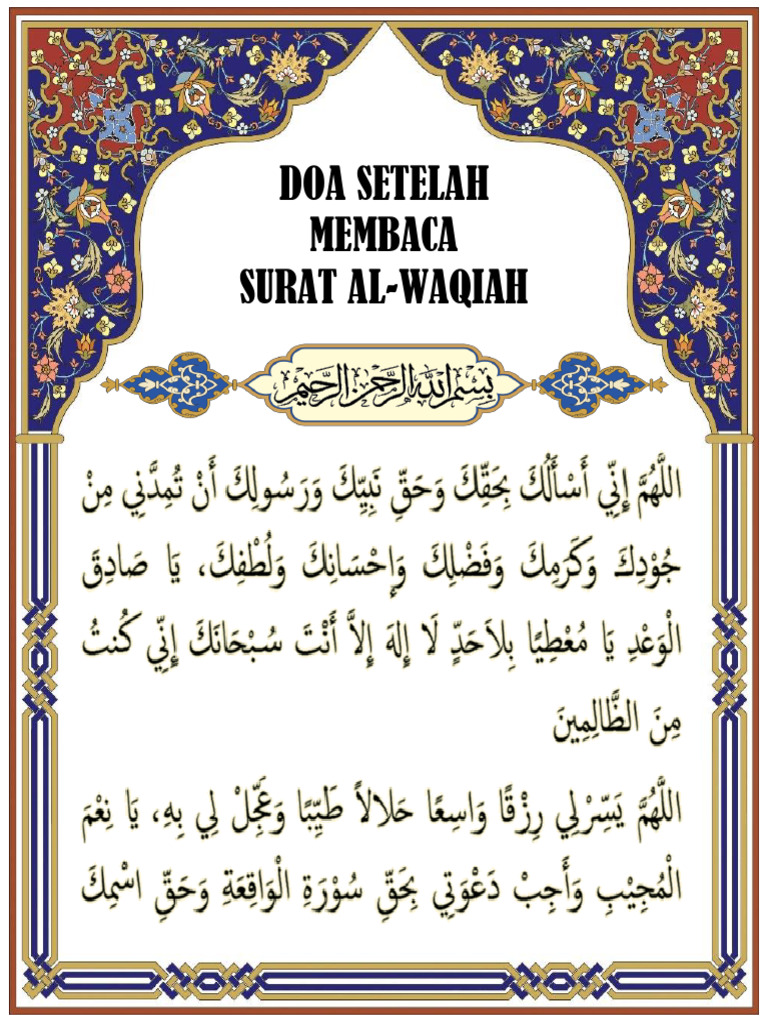 DOA SETELAH
MEMBACA
SURAT AL-WAQIAH
بِسْمِ اللَّهِ الرَّحْمَنِ الرَّحِيْمِ
اللَّهُمَّ إِنِّي أَسْأَلُكَ بِحَقِّكَ وَحَقِّ نَبِيِّكَ وَرَسُولِكَ أَنْ تُمِدَّنِي مِنْ
جُوْدِكَ وَكَرَمِكَ وَفَضْلِكَ وَإِحْسَانِكَ وَلُطْفِكَ، يَا صَادِقَ
الْوَعْدِ يَا مُعْطِيًا بِلاَحَدٍّ لَا إِلهَ إِلاَّ أَنْتَ سُبْحَانَكَ إِنِّي كُنتُ
مِنَ الظَّالِمِينَ
اللَّهُمَّ يَسِّرْلِي رِزْقًا وَاسِعًا حَلالاً طَيِّبًا وَعَجِّلْ لِي بِهِ، يَا نِعْمَ
الْمُجِيْبِ وَأَجِبْ دَعْوَتِي بِحَقِّ سُوْرَةِ الْوَاقِعَةِ وَحَقِّ اسْمِكَ